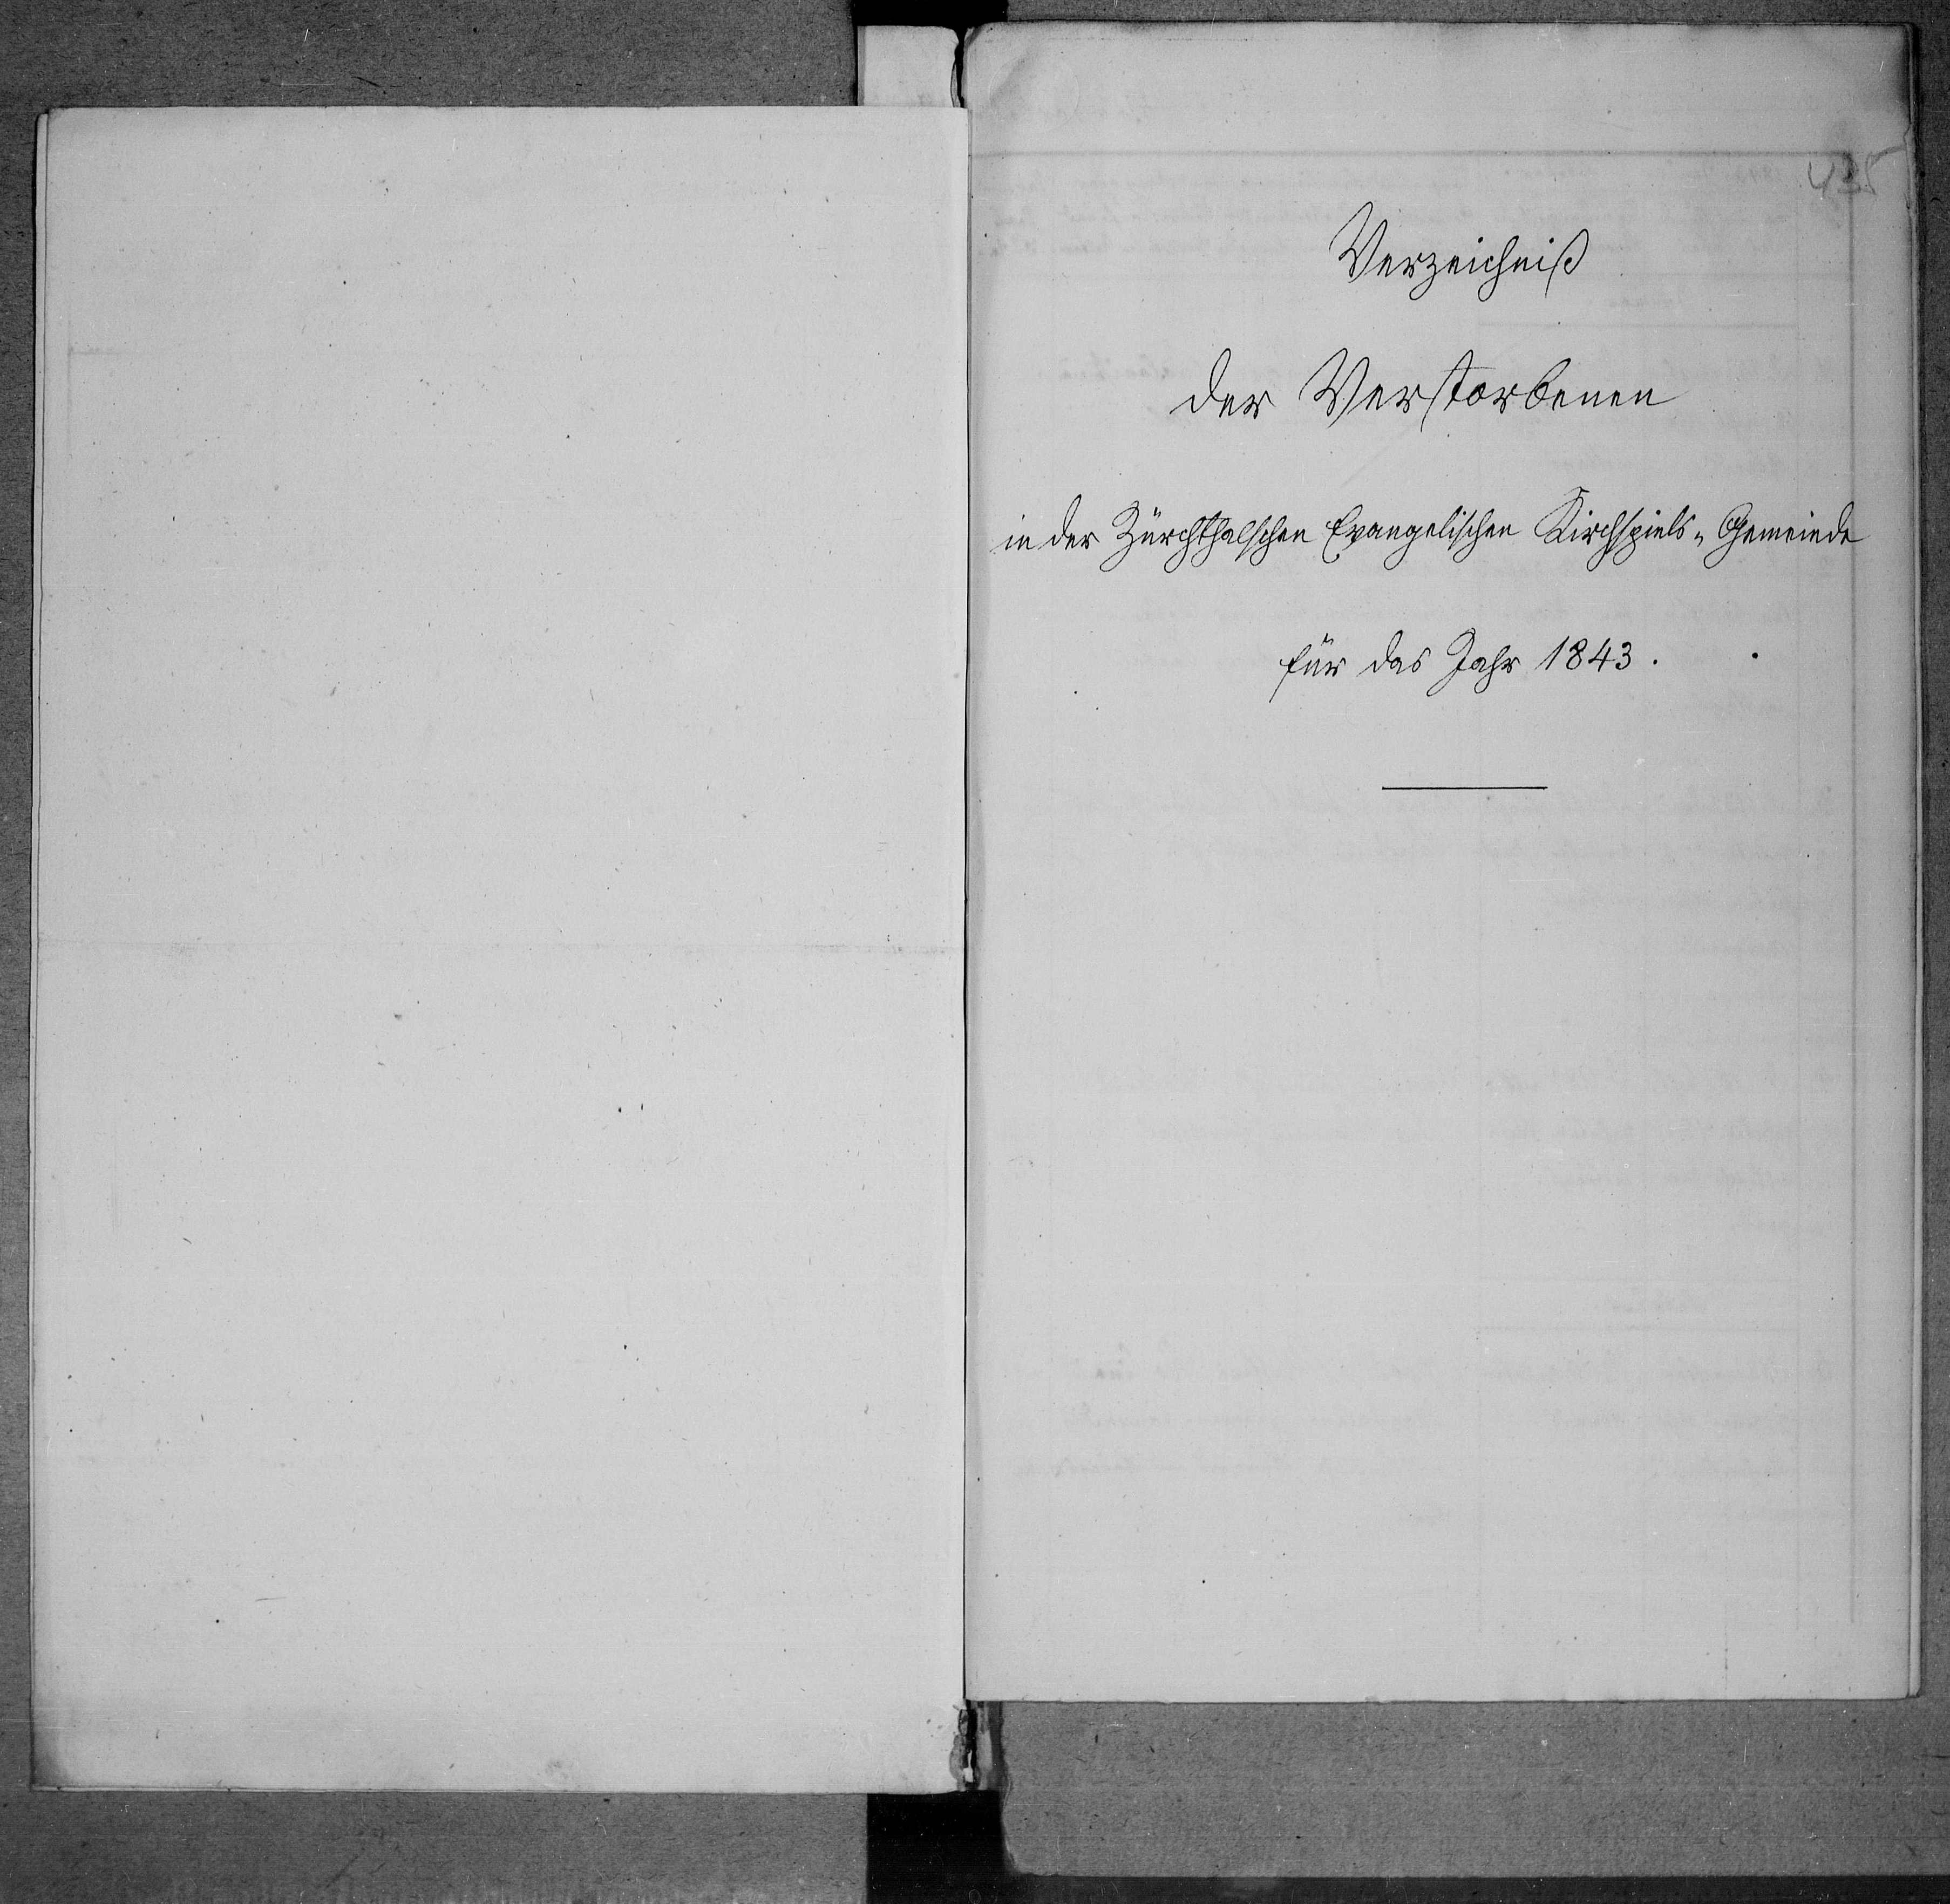 435
Verzeichniß
der Verstorbenen
in der Zürchthalschen Evangelischen Kirchspiels-Gemeinde
für das Jahr 1843.